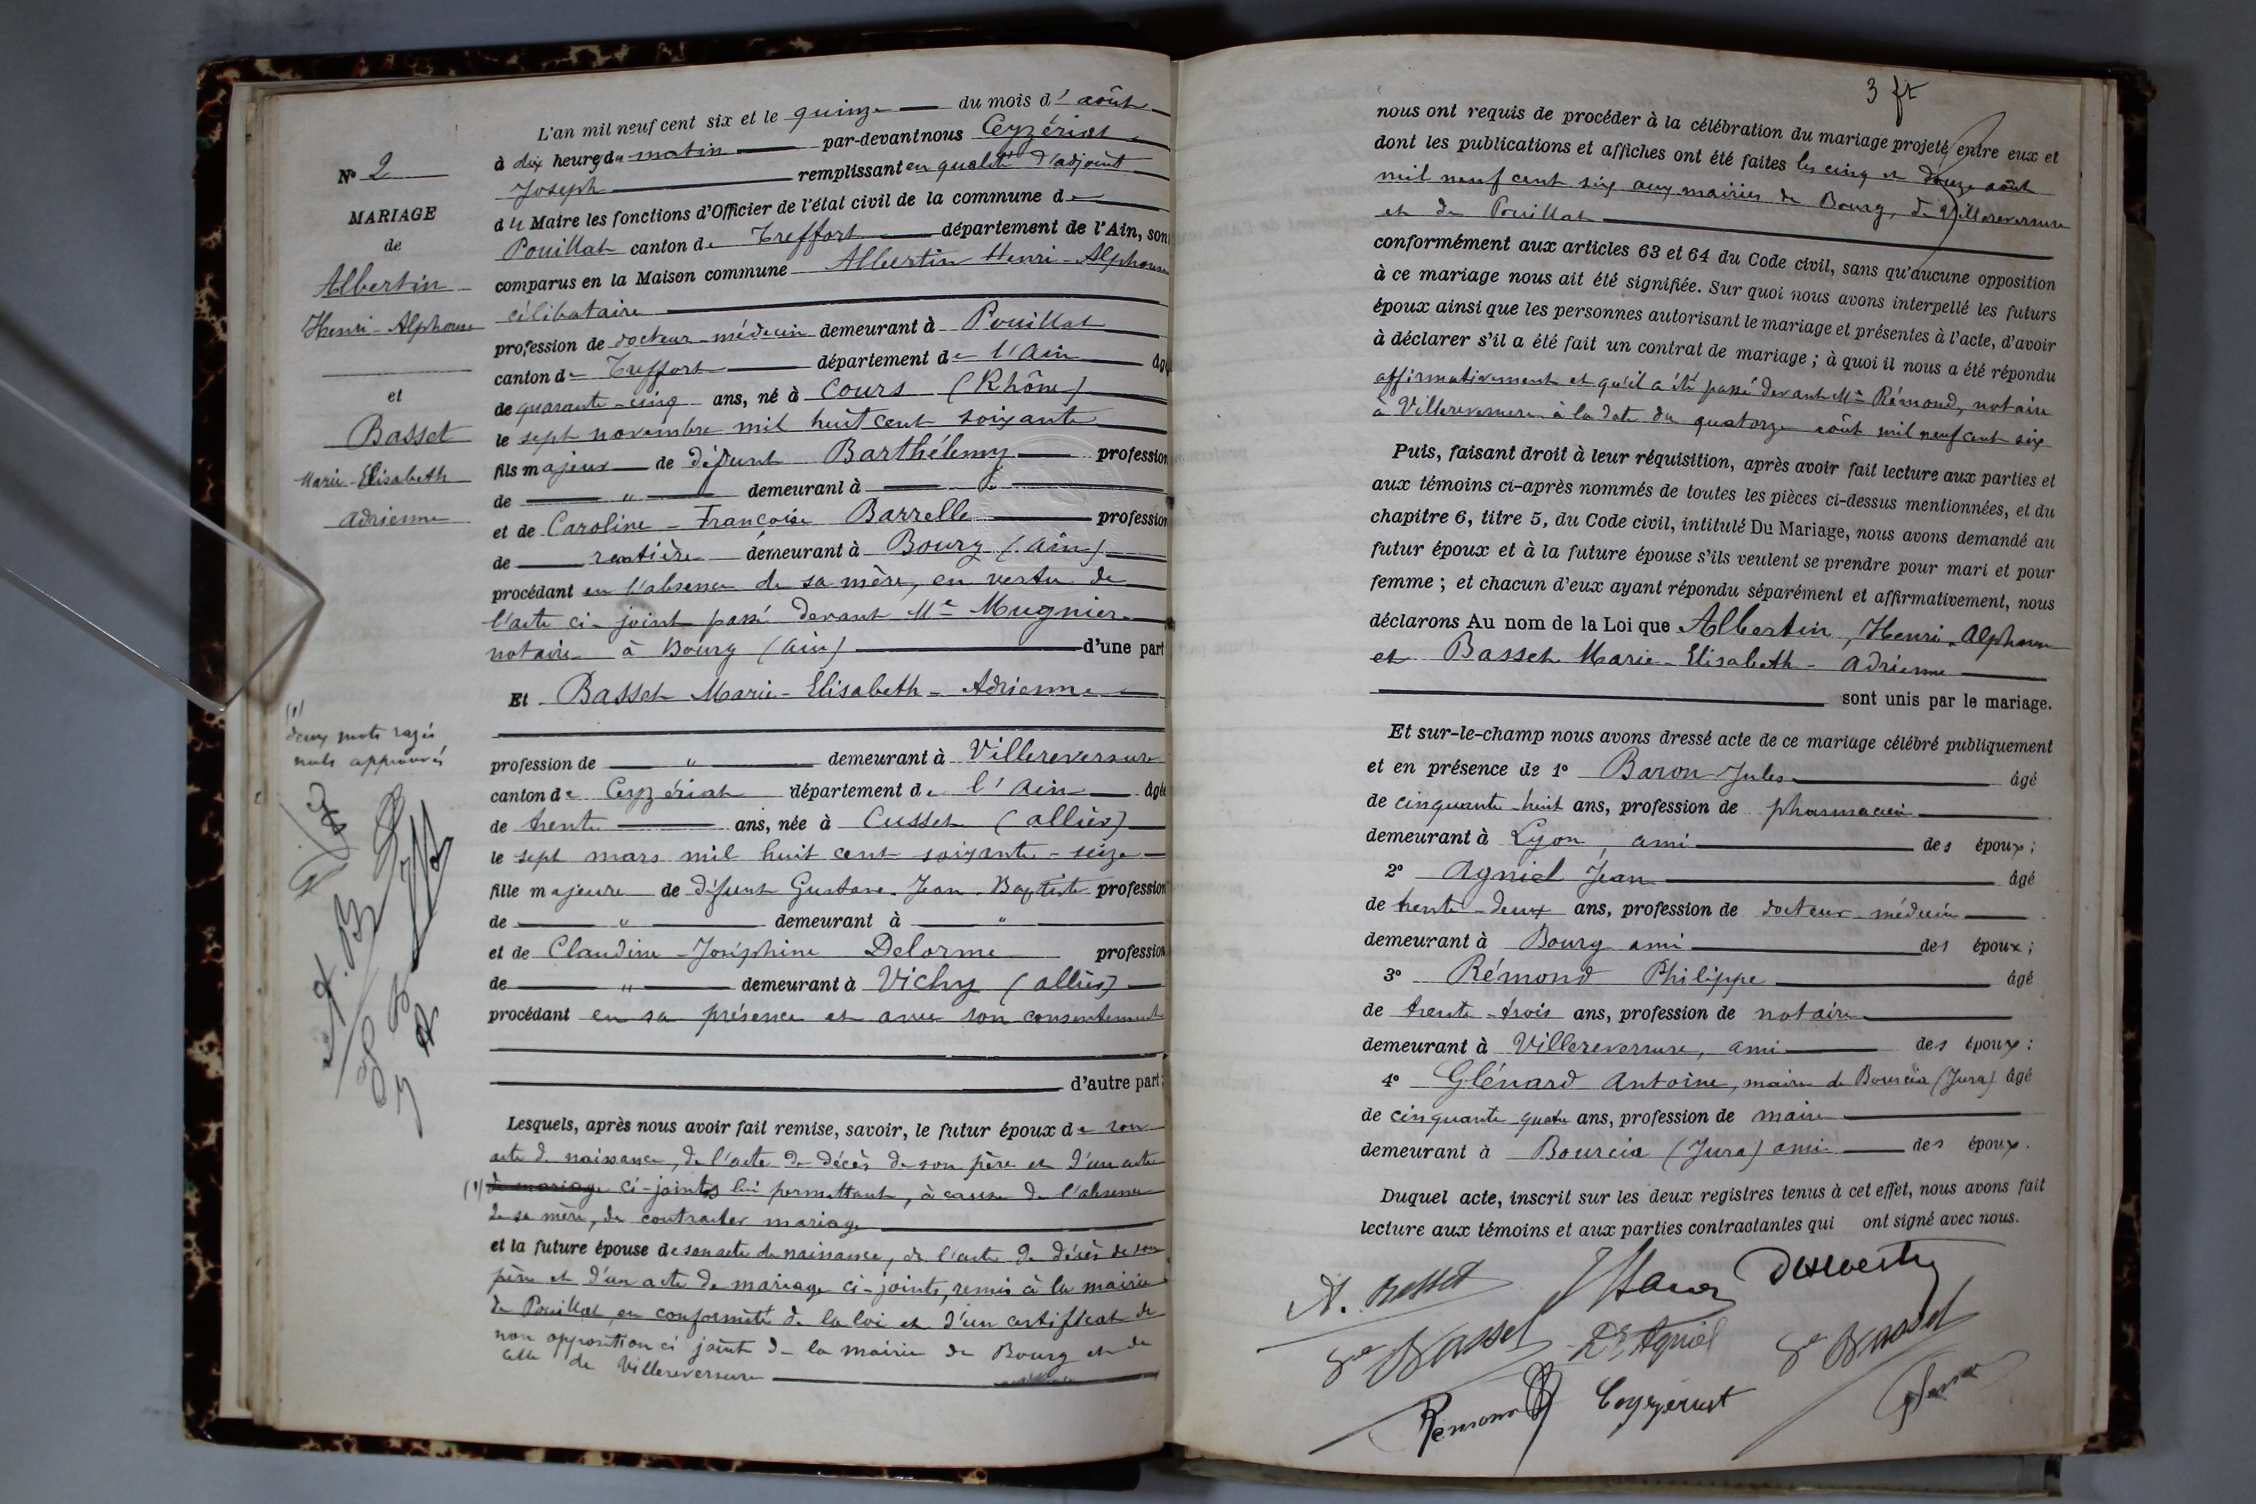 N° 2
MARIAGE
de
Albertin
Henri-Alphonse
et
Basset
Marie-Elisabeth
Adrienne
(1)
deux mots rayés
nuls approuvés
L'an mil neuf cent six et le quinze du mois d'août
à dix heures du matin par-devant nous Ceyzériat
Joseph remplissant en qualité d'adjoint
du Maire les fonctions d'Officier de l'état civil de la commune de
Pouillat canton de Treffort département de l'Ain, sont
comparus en la Maison commune Albertin Henri-Alphonse
célibataire
profession de docteur-médecin demeurant à Pouillat
canton de Treffort département de l'Ain âgé
de quarante-cinq ans, né à Cours (Rhône)
le sept novembre mil huit cent soixante
fils majeur de défunt Barthélemy profession
de " demeurant à "
et de Caroline-Françoise Barrelle profession
de rentière demeurant à Bourg (Ain)
procédant en l'absence de sa mère, en vertu de
l'acte ci-joint passé devant Me Mugnier
notaire à Bourg (Ain) d'une part
Et Basset Marie-Elisabeth-Adrienne
profession de " demeurant à Villereversure
canton de Ceyzériat département de l'Ain âgée
de trente ans, née à Cusset (Allier)
le sept mars mil huit cent soixante-seize
fille majeure de défunt Gustave-Jean-Baptiste profession
de " demeurant à "
et de Claudine-Joséphine Delorme profession
de " demeurant à Vichy (Allier)
procédant en sa présence et avec son consentement
d'autre part;
Lesquels, après nous avoir fait remise, savoir, le futur époux de son
acte de naissance, de l'acte de décès de son père et d'un acte
(1) de mariage ci-joints lui permettant, à cause de l'absence
de sa mère, de contracter mariage
et la future épouse de son acte de naissance, de l'acte de décès de son
père et d'un acte de mariage ci-joints, remis à la mairie
de Pouillat, en conformité de la loi et d'un certificat de
non opposition ci joint de la mairie de Bourg et de
celle de Villereversure
3 ft
nous ont requis de procéder à la célébration du mariage projeté entre eux et
dont les publications et affiches ont été faites les cinq et douze août
mil neuf cent six aux mairies de Bourg, de Villereversure
et de Pouillat
conformément aux articles 63 et 64 du Code civil, sans qu'aucune opposition
à ce mariage nous ait été signifiée. Sur quoi nous avons interpellé les futurs
époux ainsi que les personnes autorisant le mariage et présentes à l'acte, d'avoir
à déclarer s'il a été fait un contrat de mariage; à quoi il nous a été répondu
affirmativement et qu'il a été passé devant Me Rémond, notaire
à Villereversure à la date du quatorze août mil neuf cent six
Puis, faisant droit à leur réquisition, après avoir fait lecture aux parties et
aux témoins ci-après nommés de toutes les pièces ci-dessus mentionnées, et du
chapitre 6, titre 5, du Code civil, intitulé Du Mariage, nous avons demandé au
futur époux et à la future épouse s'ils veulent se prendre pour mari et pour
femme; et chacun d'eux ayant répondu séparément et affirmativement, nous
déclarons Au nom de la Loi que Albertin, Henri-Alphonse
et Basset Marie-Elisabeth-Adrienne
sont unis par le mariage.
Et sur-le-champ nous avons dressé acte de ce mariage célébré publiquement
et en présence de 1° Baron Jules âgé
de cinquante-huit ans, profession de pharmacien
demeurant à Lyon, ami des époux;
2° Agniel Jean âgé
de trente-deux ans, profession de docteur-médecin
demeurant à Bourg ami des époux;
3° Rémond Philippe âgé
de trente-trois ans, profession de notaire
demeurant à Villereversure, ami des époux:
4° Glénard Antoine, maire de Bourcia (Jura) âgé
de cinquante quatre ans, profession de maire
demeurant à Bourcia (Jura) ami des époux.
Duquel acte, inscrit sur les deux registres tenus à cet effet, nous avons fait
lecture aux témoins et aux parties contractantes qui ont signé avec nous.
A. Basset
Basset Dr Agniel Basset
Rémond Ceyzériat